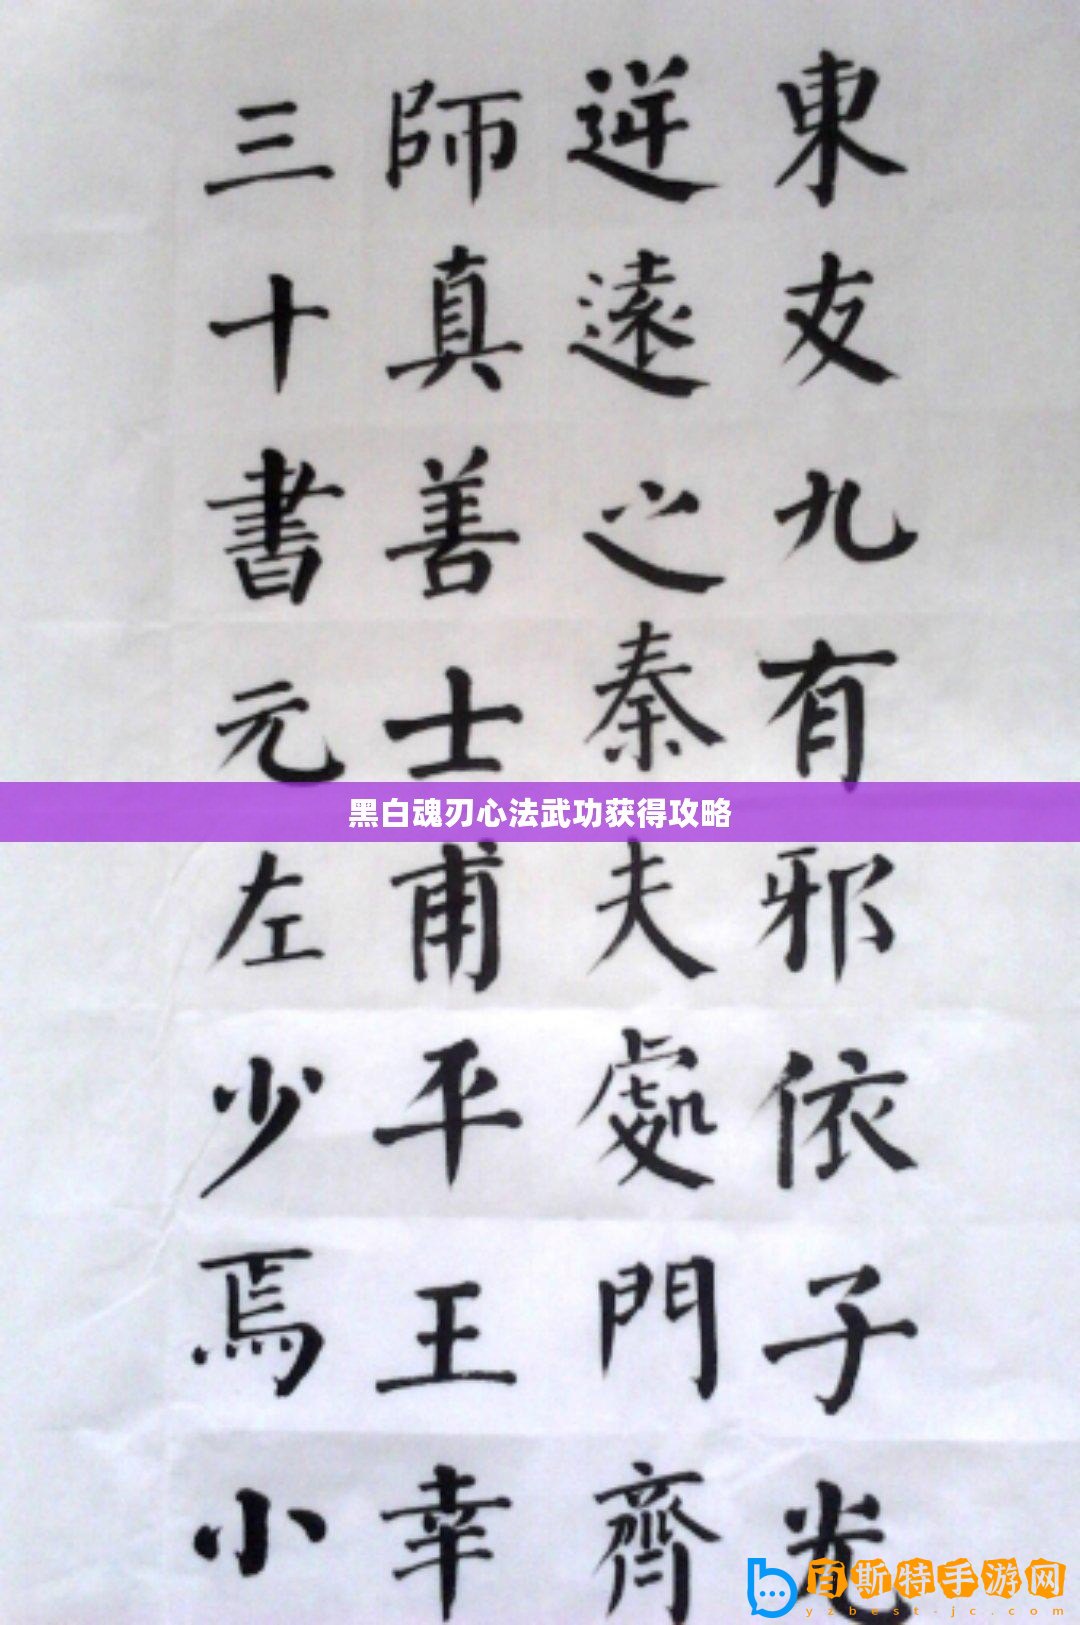 東友九有邪依子光
迸遠之秦夫處門齊
師真善士甫平王幸
三十書元左少焉小
黑白魂刃心法武功获得攻略
百斯特手游网
yzbest-jc.com